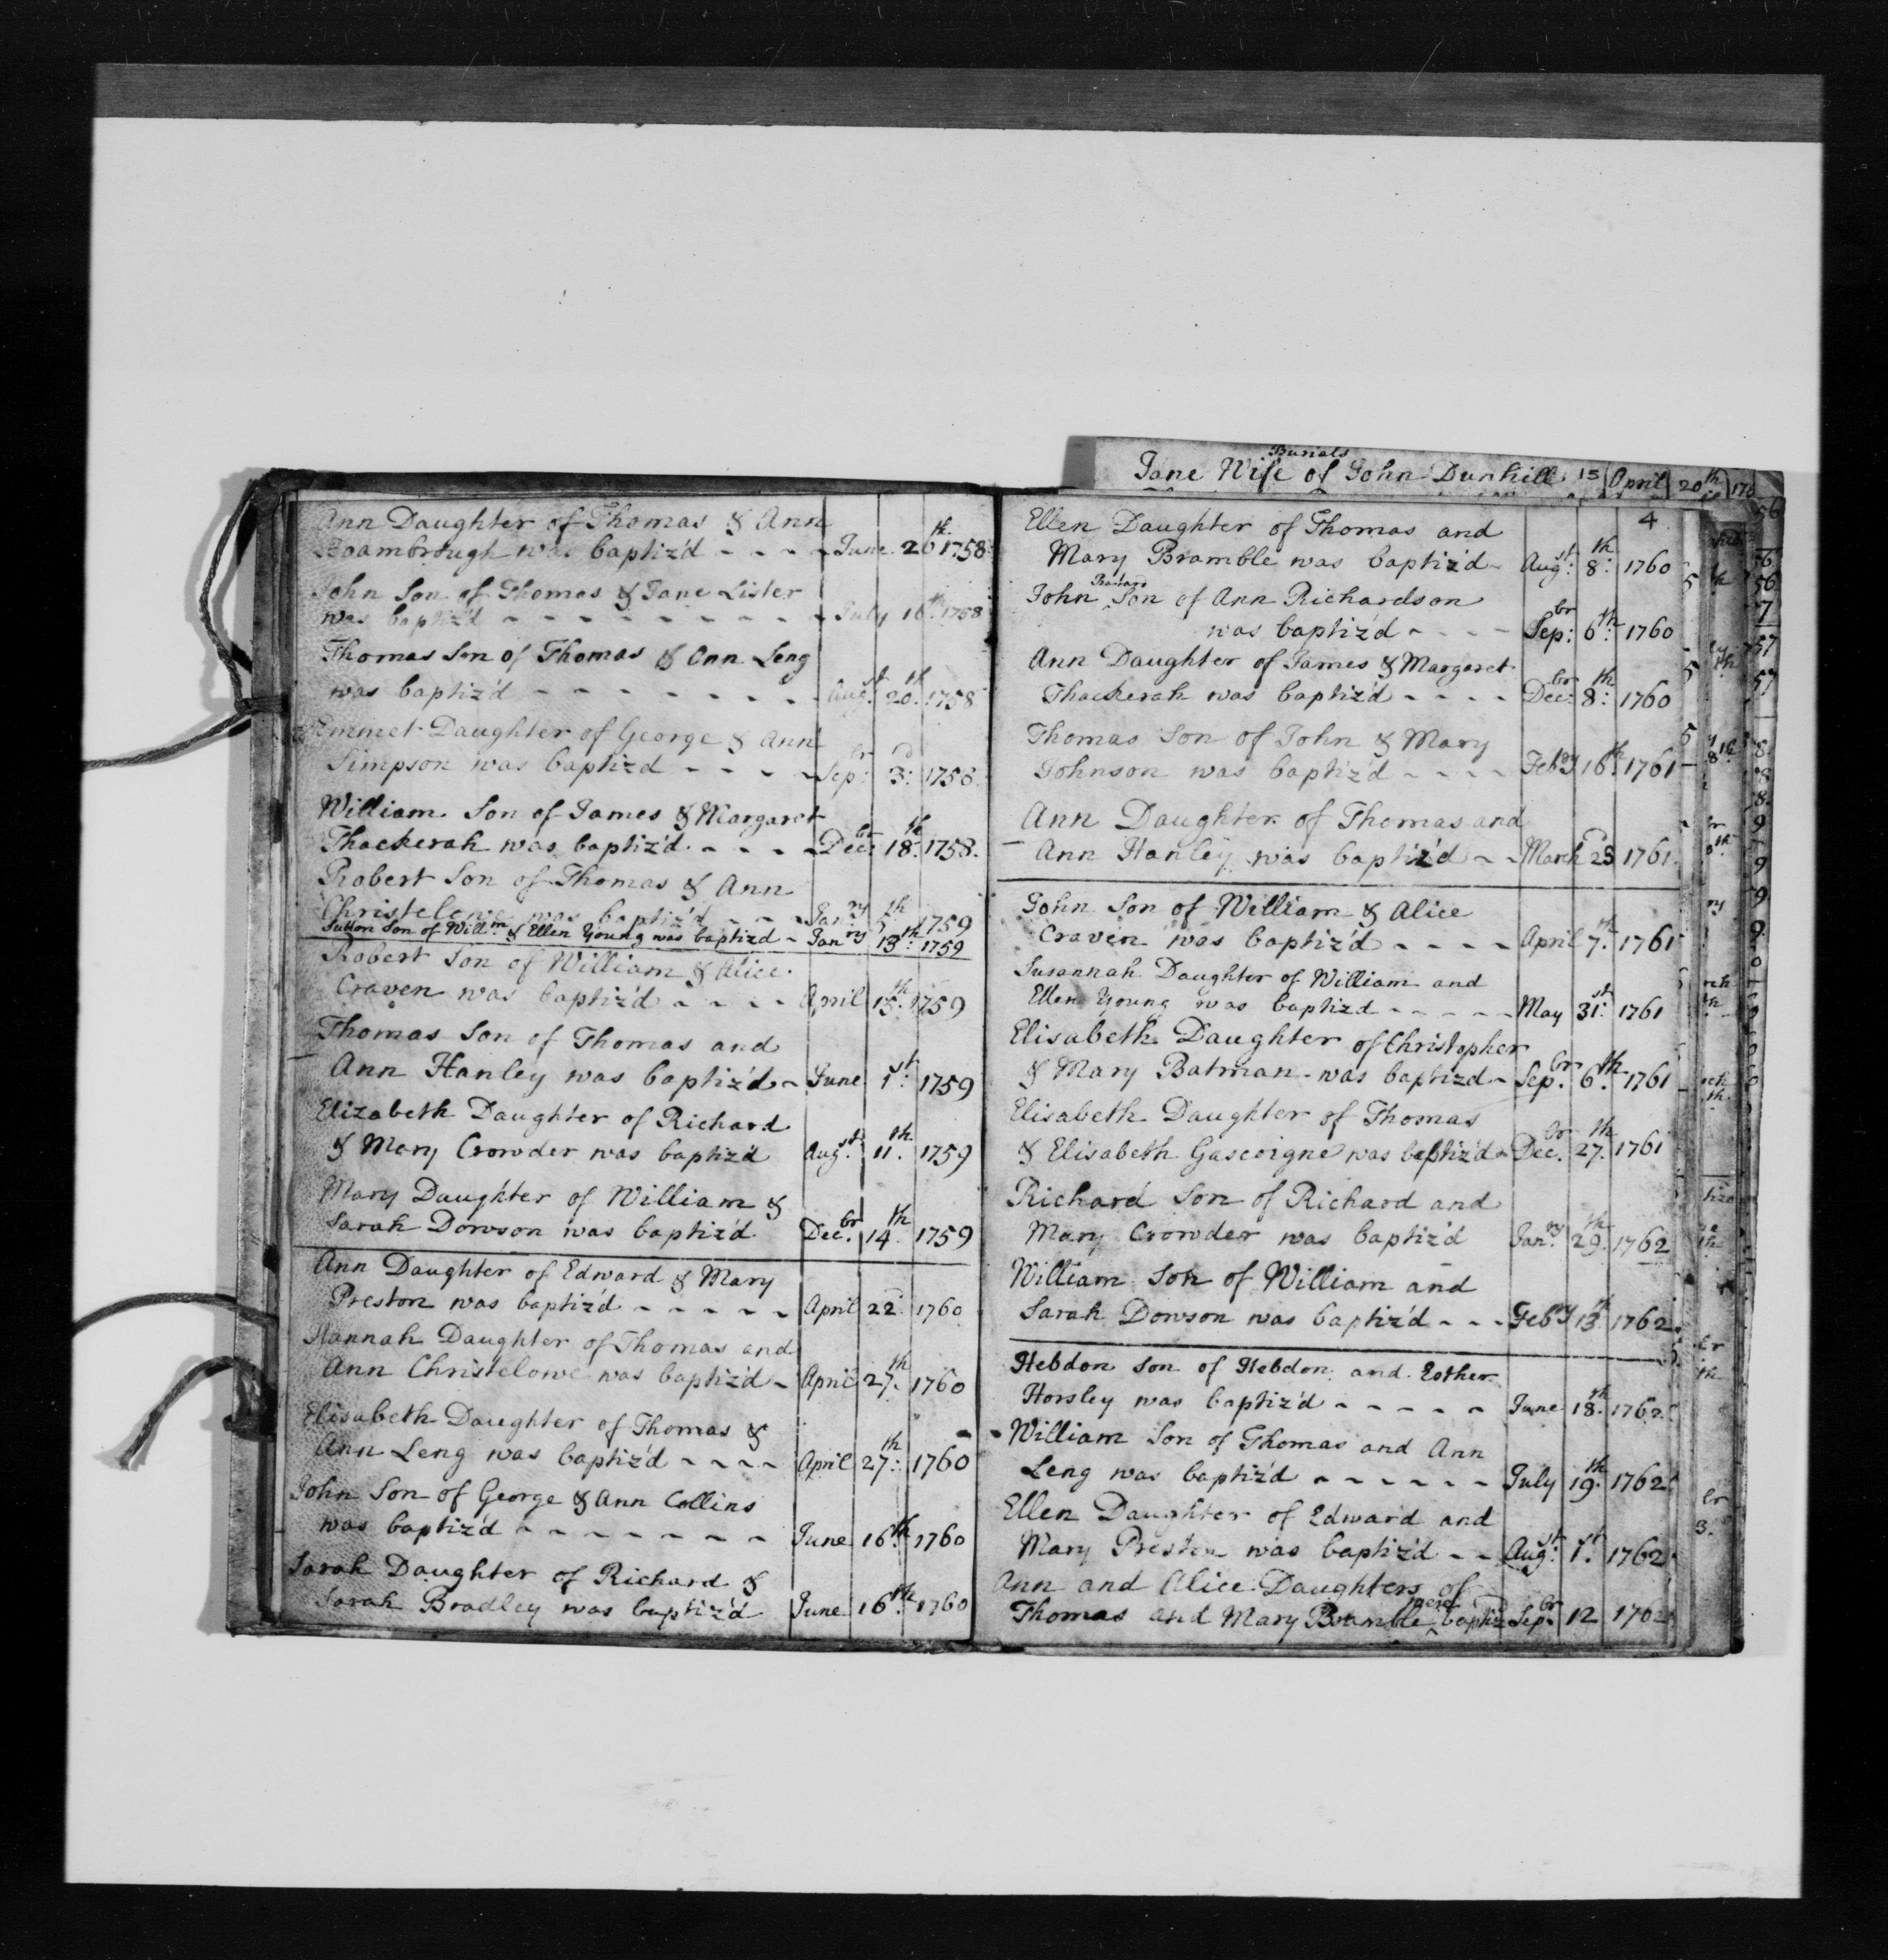 Burials
Jane Wife of John Dunhill 15 April 20th
Ann Daughter of Thomas & Ann
was baptiz'd - - - - June 26th 1758
John Son of Thomas & Jane Lister
was baptiz'd - - - - - - - - - July 16th 1758
Thomas Son of Thomas & Ann Leng
was baptiz'd - - - - - - - - Augst 20th 1758
Emmet Daughter of George & Ann
Simpson was baptizd - - - - Sepbr 3d 1758
William Son of James & Margaret
Thackerah was baptiz'd - - - - Decbr 18th 1758.
Robert Son of Thomas & Ann
Christelowe was baptiz'd - - - Janry th 1759
Sutton Son of Willm & Ellen Young was baptizd - Janry 13th 1759
Robert Son of William & Alice
Craven was baptiz'd - - - - April 15th 1759
Thomas Son of Thomas and
Ann Hanley was baptiz'd - June 1st 1759
Elizabeth Daughter of Richard
& Mary Crowder was baptiz'd Augst 11th 1759
Mary Daughter of William &
Sarah Dowson was baptiz'd Decbr 14th 1759
Ann Daughter of Edward & Mary
Preston was baptiz'd - - - - - April 22d 1760
Hannah Daughter of Thomas and
Ann Christelowe was baptiz'd - April 27th 1760
Elisabeth Daughter of Thomas &
Ann Leng was baptiz'd - - - - April 27th 1760
John Son of George & Ann Collins
was baptiz'd - - - - - - - June 16th 1760
Sarah Daughter of Richard &
Sarah Bradley was baptiz'd June 16th 1760
4
Ellen Daughter of Thomas and
Mary Bramble was baptiz'd - Augst 8th 1760
John Bastard Son of Ann Richardson
was baptiz'd - - - - Sepbr 6th 1760
Ann Daughter of James & Margaret
Thackerah was baptiz'd - - - - Decbr 8th 1760
Thomas Son of John & Mary
Johnson was baptiz'd - - - - Febry 16th 1761
Ann Daughter of Thomas and
Ann Hanley was baptiz'd - - March 1761
John Son of William & Alice
Craven was baptiz'd - - - - April 7th 1761
Susannah Daughter of William and
Ellen Young was baptizd - - - - - May 31st 1761
Elisabeth Daughter of Christopher
& Mary Batman was baptizd - Sepbr 6th 1761
Elisabeth Daughter of Thomas
& Elisabeth Gascoigne was baptiz'd - Decbr 27th 1761
Richard Son of Richard and
Mary Crowder was baptiz'd Janry 29th 1762
William Son of William and
Sarah Dowson was baptiz'd - - - Febry 13th 1762
Hebdon Son of Hebdon and Esther
Horsley was baptiz'd - - - - - June 18th 1762
William Son of Thomas and Ann
Leng was baptiz'd - - - - - - July 19th 1762
Ellen Daughter of Edward and
Mary Preston was baptiz'd - - Augst 1st 1762
Ann and Alice Daughters of
Thomas and Mary Bramble were baptiz Sepbr 12 1762